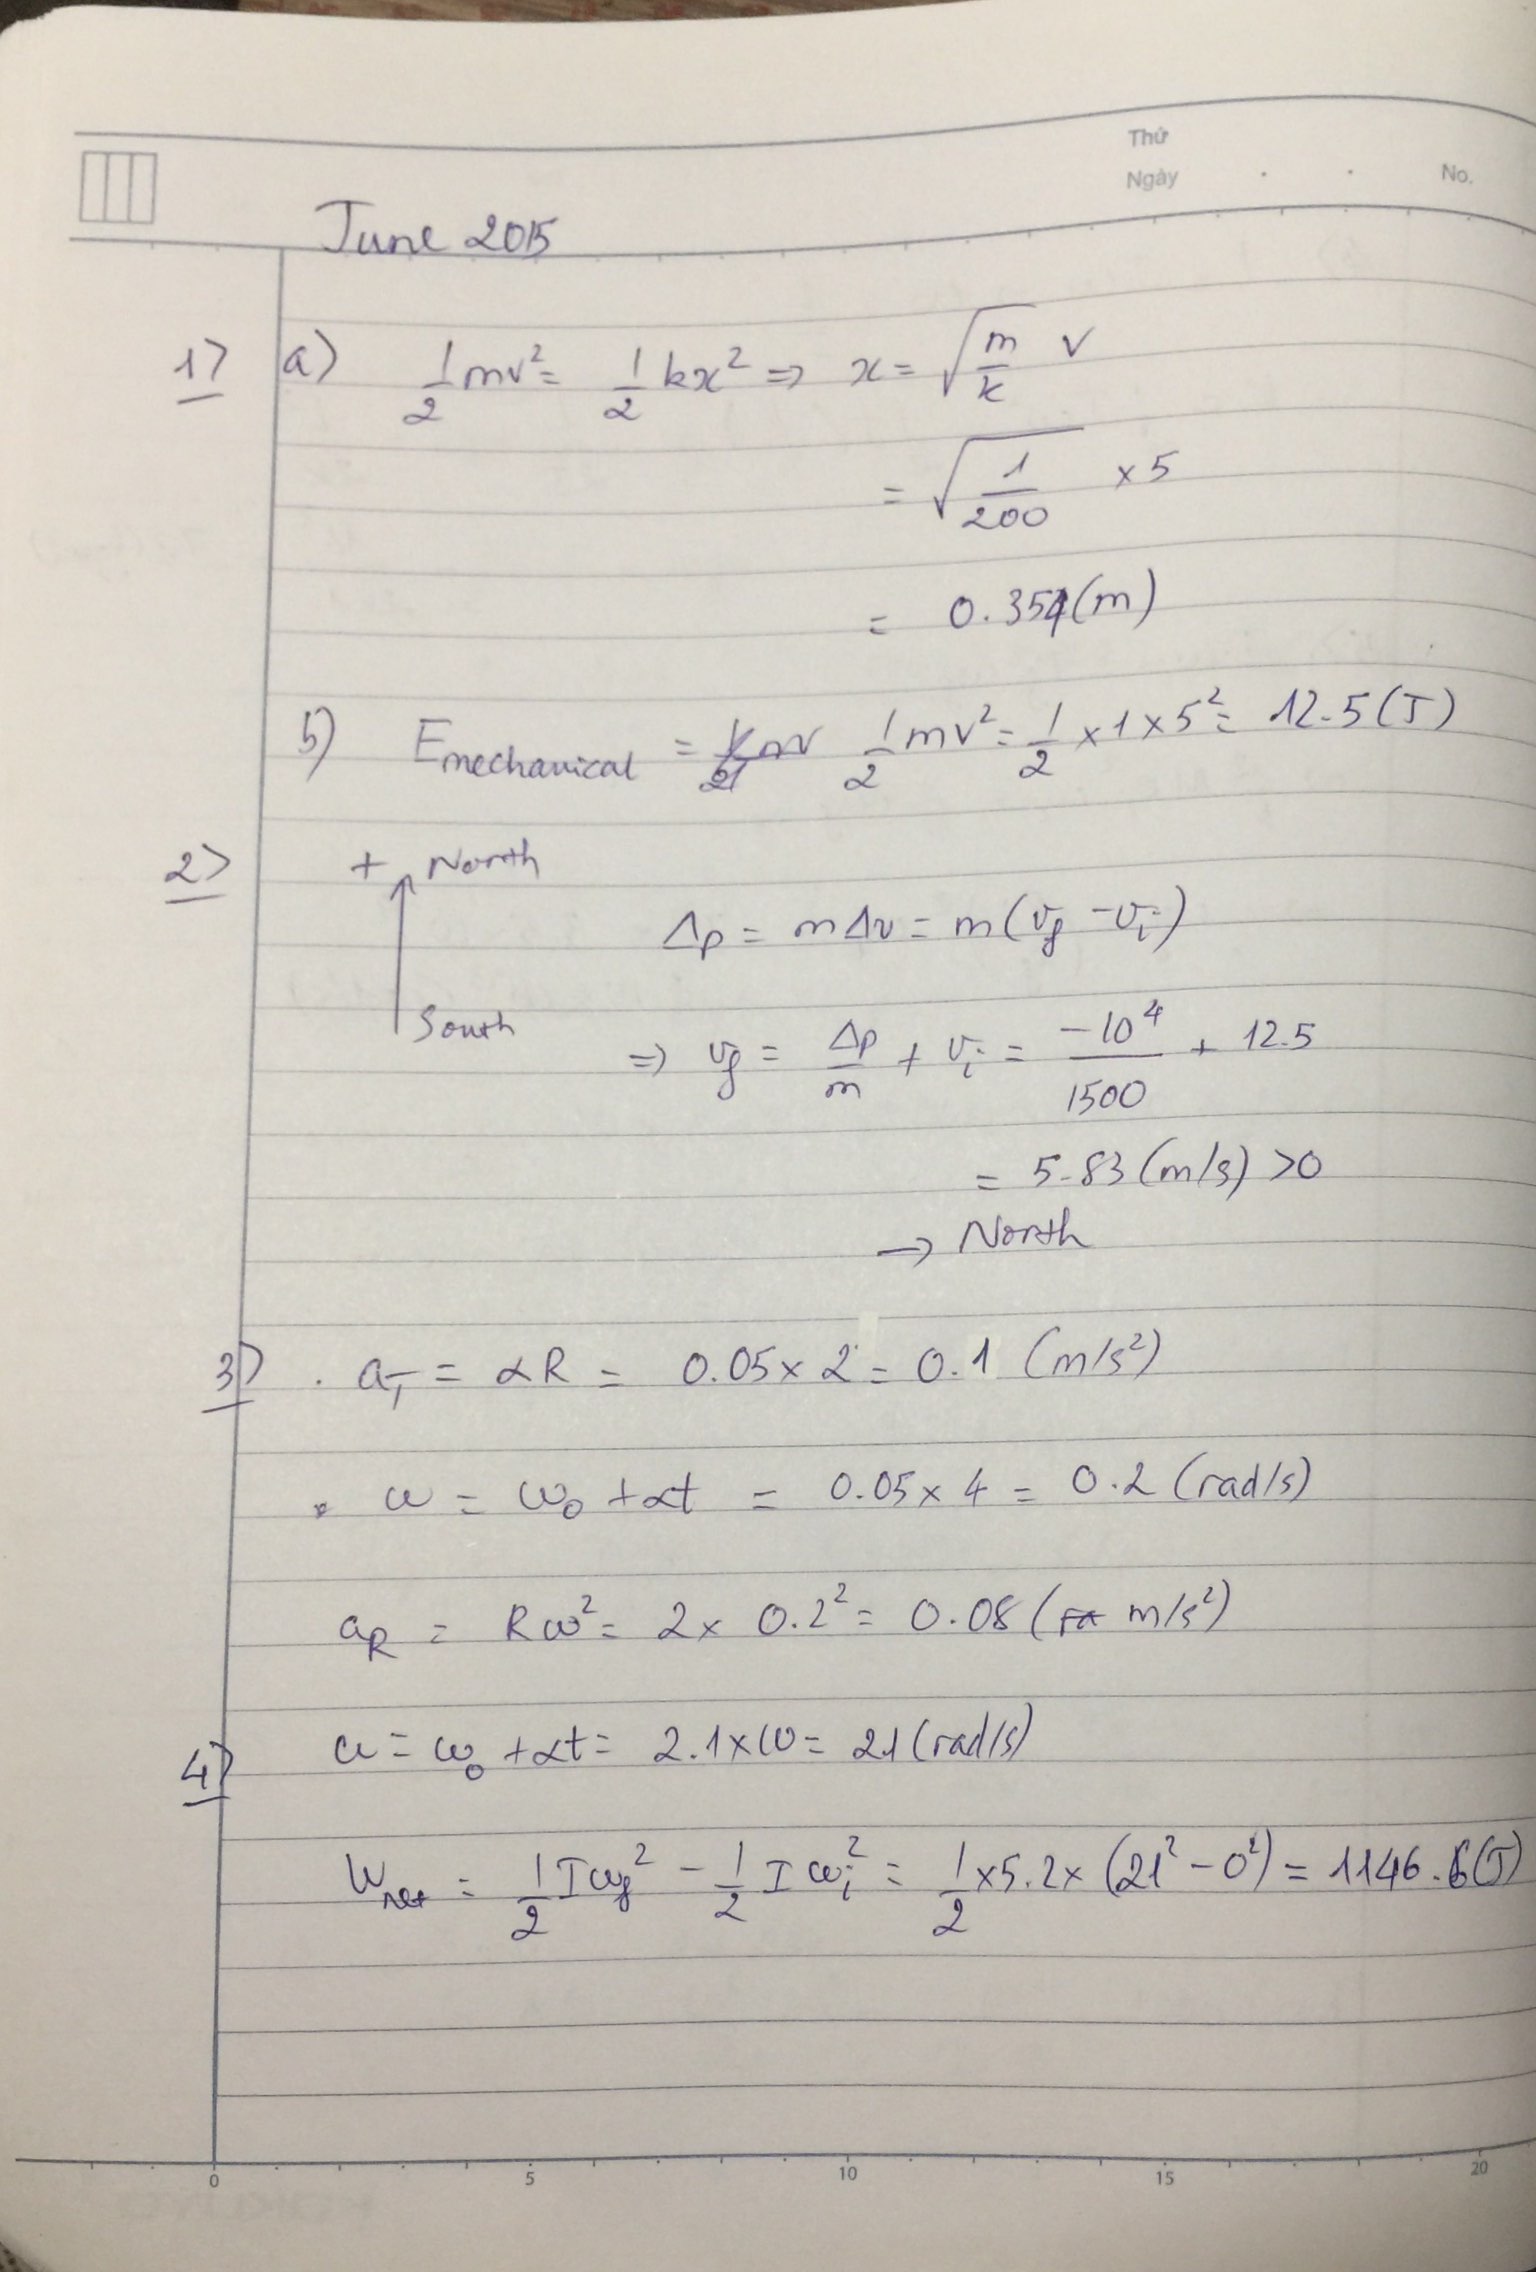 Thứ
Ngày . . No.
June 2015
1> a) 1/2 mv² = 1/2 kx² => x = √(m/k) v
= √(1/200) × 5
= 0.354 (m)
b) Emechanical = 1/2 mv² = 1/2 × 1 × 5² = 12.5 (J)
2> + North
Δp = mΔv = m(vf - vi)
South
=> vf = Δp/m + vi = -10⁴/1500 + 12.5
= 5.83 (m/s) >0
→ North
3) . aT = αR = 0.05 × 2 = 0.1 (m/s²)
. ω = ω₀ + αt = 0.05 × 4 = 0.2 (rad/s)
aR = Rω² = 2 × 0.2² = 0.08 (m/s²)
4) ω = ω₀ + αt = 2.1 × 10 = 21 (rad/s)
Wnet = 1/2 Iωf² - 1/2 Iωi² = 1/2 × 5.2 × (21² - 0²) = 1146.6 (J)
0 5 10 15 20